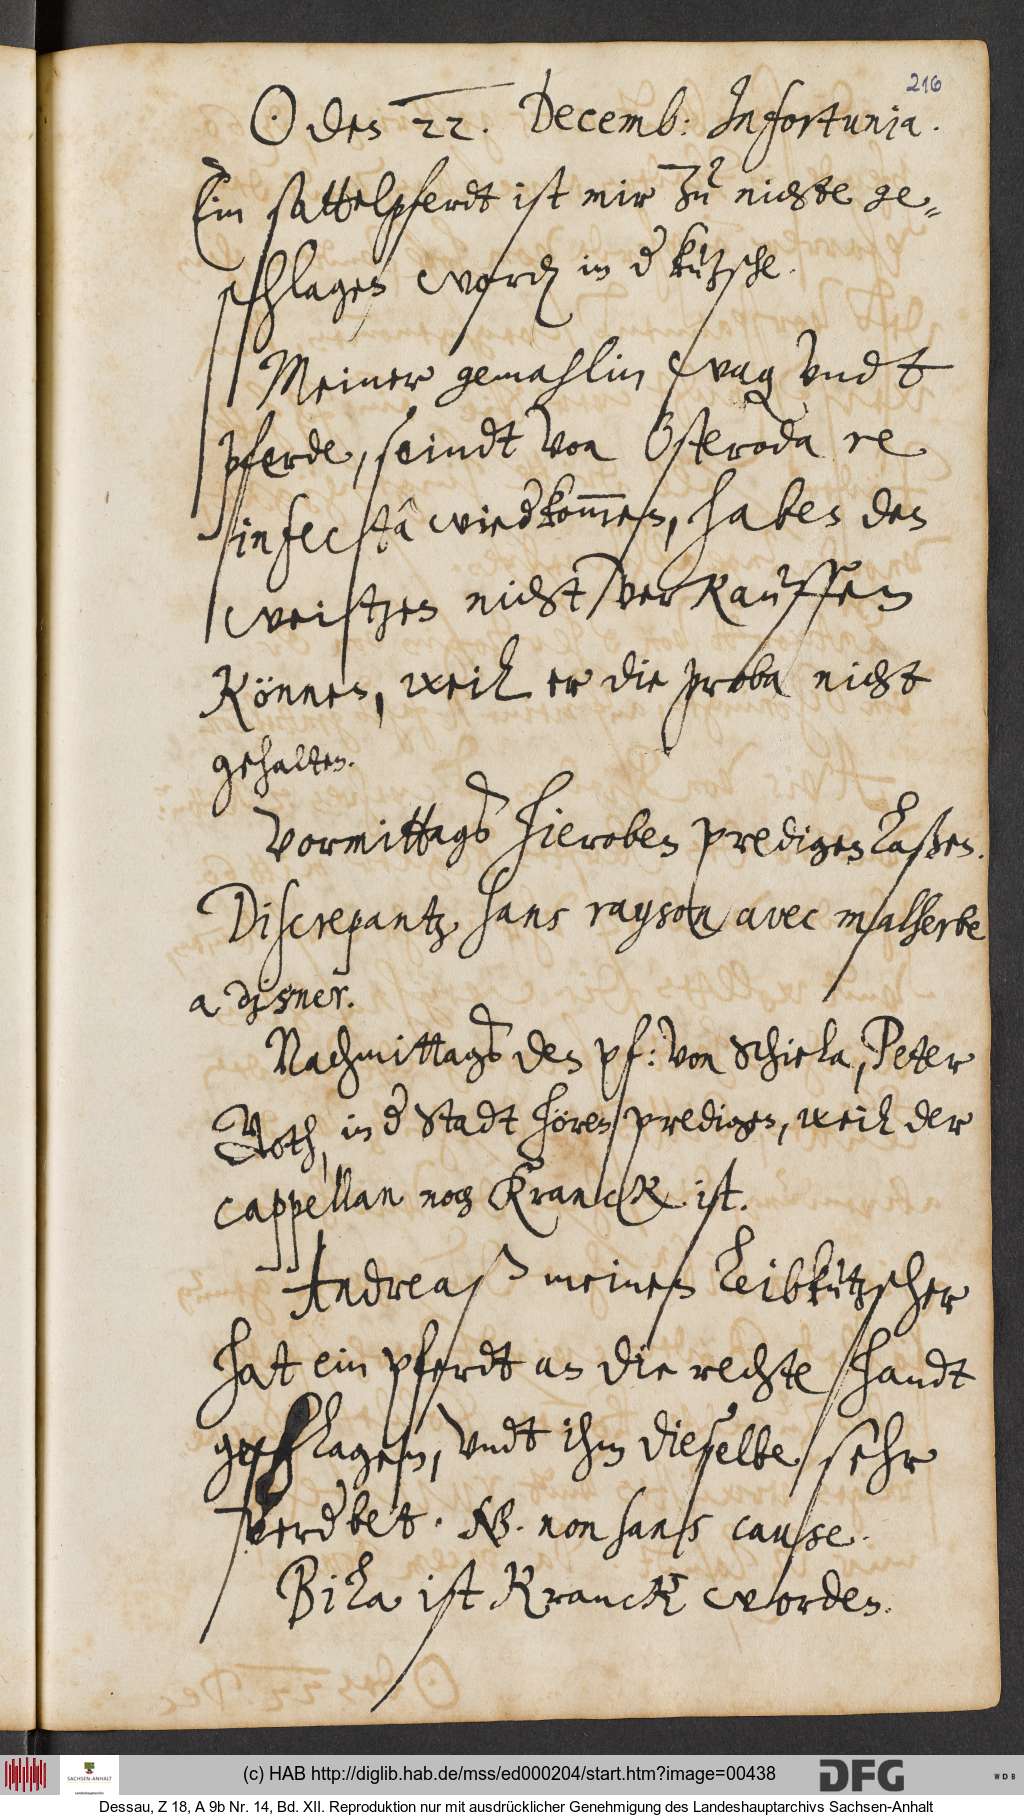 216
☉ des 22. Decemb: Infortunia.
Ein sattelpferdt ist mir zu nichte ge-
schlagen worden in der kutzsche.
Meiner gemahlin wag undt
pferde, seindt von Osteroda re
infectâ wiederkommen, haben den
weitzen nicht verkauffen
können, weil er die proba nicht
gehalten.
Vormittags hieroben predigen laßen.
Discrepantz sans rayson avec malherbe
a disner.
Nachmittags den pf: von Schiela, Peter
Goth, in der Stadt hören predigen, weil der
cappellan noch kranck ist.
Andreaß meinen Leibkützscher
hat ein pferdt an die rechte handt
geschlagen, undt ihm dieselbe sehr
verderbet. NB. non sans cause.
Bila ist kranck worden.
(c) HAB http://diglib.hab.de/mss/ed000204/start.htm?image=00438
SACHSEN-ANHALT
DFG
WDB
Dessau, Z 18, A 9b Nr. 14, Bd. XII. Reproduktion nur mit ausdrücklicher Genehmigung des Landeshauptarchivs Sachsen-Anhalt